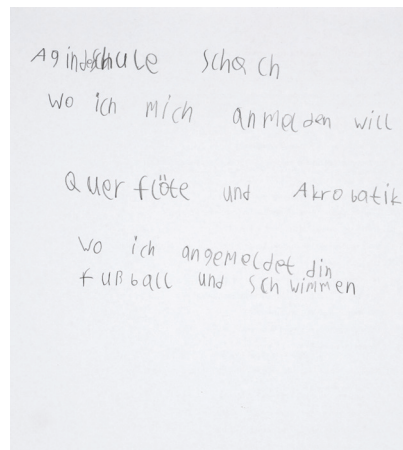 Ag in der schule Schach
Wo ich mich anmelden will
Querflöte und Akrobatik
Wo ich angemeldet din
fußball und Schwimmen